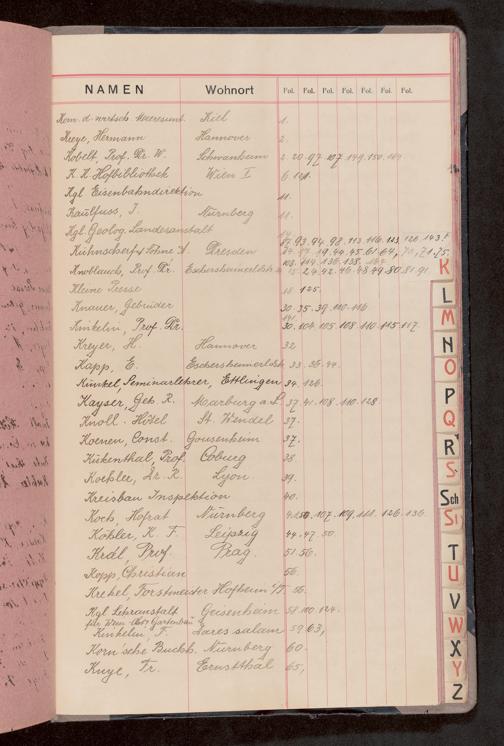 NAMEN Wohnort Fol. Fol. Fol. Fol. Fol. Fol. Fol.
Kom. d. Kiel 1.
Kreye, Hermann Hannover 2.
Kobelt, Prof. Dr. W. Schwanheim 2. 20. 97. 107. 149. 150.
K. K. Hofbibliothek Wien I 6
Kgl Eisenbahndirektion 11.
Kaulfuss, J. Nürnberg 11.
Kgl. Geolog. Landesanstalt
Kühnscherf Söhne Dresden
Knoblauch, Prof. Dr. Eschersheimerldstr. 24. 42. 46. 48. 49. 80. 81. 91.
Kleine Presse 18 125.
Knauer, Gebrüder 30. 35. 39. 110. 116
Kinkelin, Prof. Dr. 30. 104. 105. 108. 110. 115. 117.
Kreyer, H. Hannover 32
Kapp, E. Eschersheimerldstr. 33. 36. 44.
Kunkel, Seminarlehrer, Ettlingen 34. 126.
Kayser, Geh. R. Marburg a. L. 37. 41. 108. 110. 128.
Knoll - Hôtel St. Wendel 37.
Koenen, Const. Gonsenheim 37.
Kükenthal, Prof. Coburg 38.
Koehler, Dr. R. Lyon. 39.
Kreisbau Inspektion 40.
Koch, Hofrat Nürnberg 107. 109. 126. 136.
Köhler, K. F. Leipzig 44. 47. 50
Král Prof. Prag. 51. 56.
Kopp, Christian 56.
Krekel, Forstmeister Hofheim i/T. 56.
Kgl Lehranstalt Geisenheim 58. 110. 124.
für Wein Obst Gartenbau
Kinkelin, F. Dares salam 59. 63,
Korn'sche Buchh. Nürnberg 60.
Knye, Fr. Ernstthal 65,
K
L
M
N
O
P
Q
R
S
Sch
St
T
U
V
W
X
Y
Z